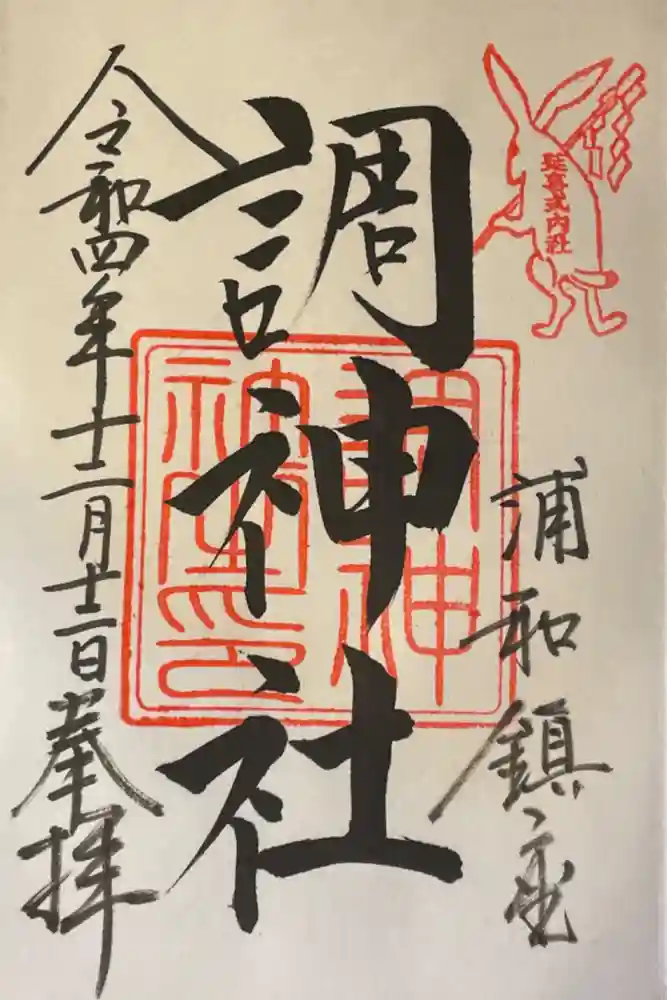 延喜式内社
浦和鎮座
調神社
調神
令和四年十二月十二日奉拝